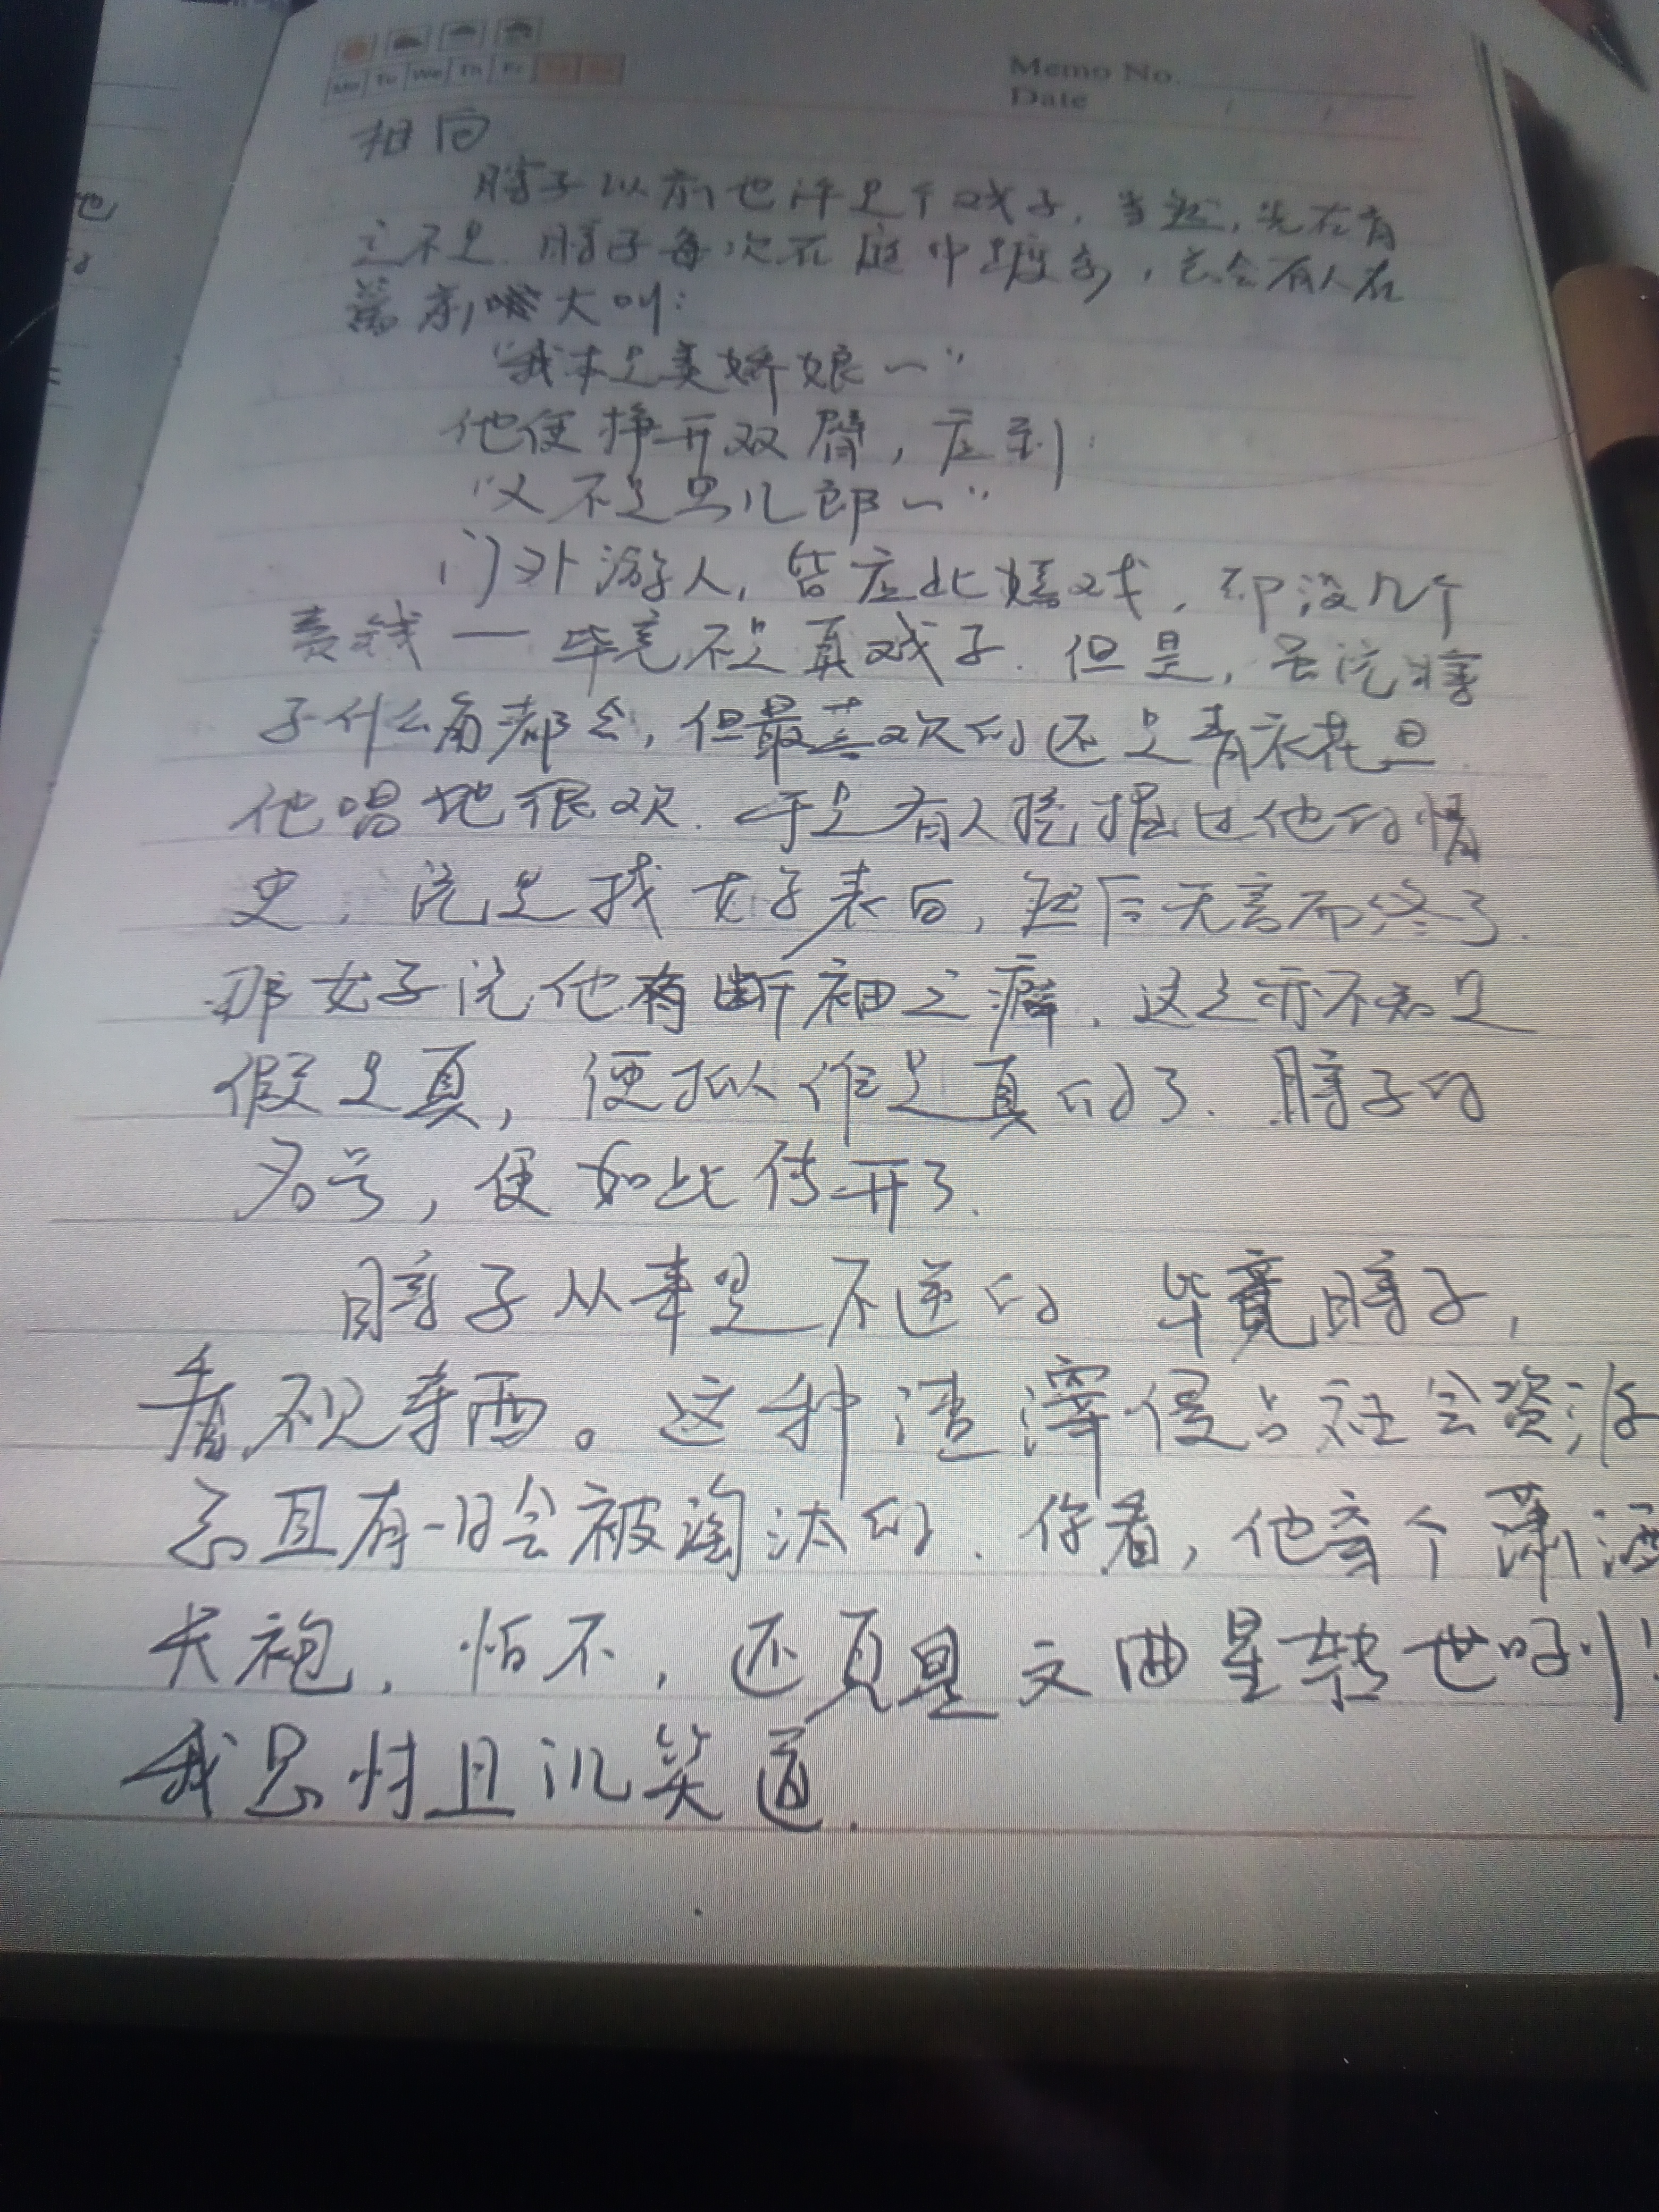 Mo Tu We Th Fr Sa Su
Memo No.
Date / /
相向
瞎子以前也许是个戏子,当然,现在肯
定不是.瞎子每次在庭中踱步,总会有人在
篱前大叫:
“我本是美娇娘~”
他便挣开双臂,应到:
“又不是男儿郎~”
门外游人,皆应此嬉戏,却没几个
卖钱—毕竟不是真戏子.但是,虽说瞎
子什么角都会,但最喜欢的还是青衣花旦.
他唱地很欢.于是有人挖掘过他的情
史,说是找女子表白,然后无言而终了.
那女子说他有断袖之癖,这是亦不知是
假是真,便拟作是真的了.瞎子的
名号,便如此传开了.
瞎子从来是不逆的 毕竟瞎子,
看不见东西。这种渣滓侵占社会资源
总且有一日会被淘汰的.你看,他穿个潇洒
长袍,怕不,还真是文曲星转世咧!
我思忖且讥笑道.
他